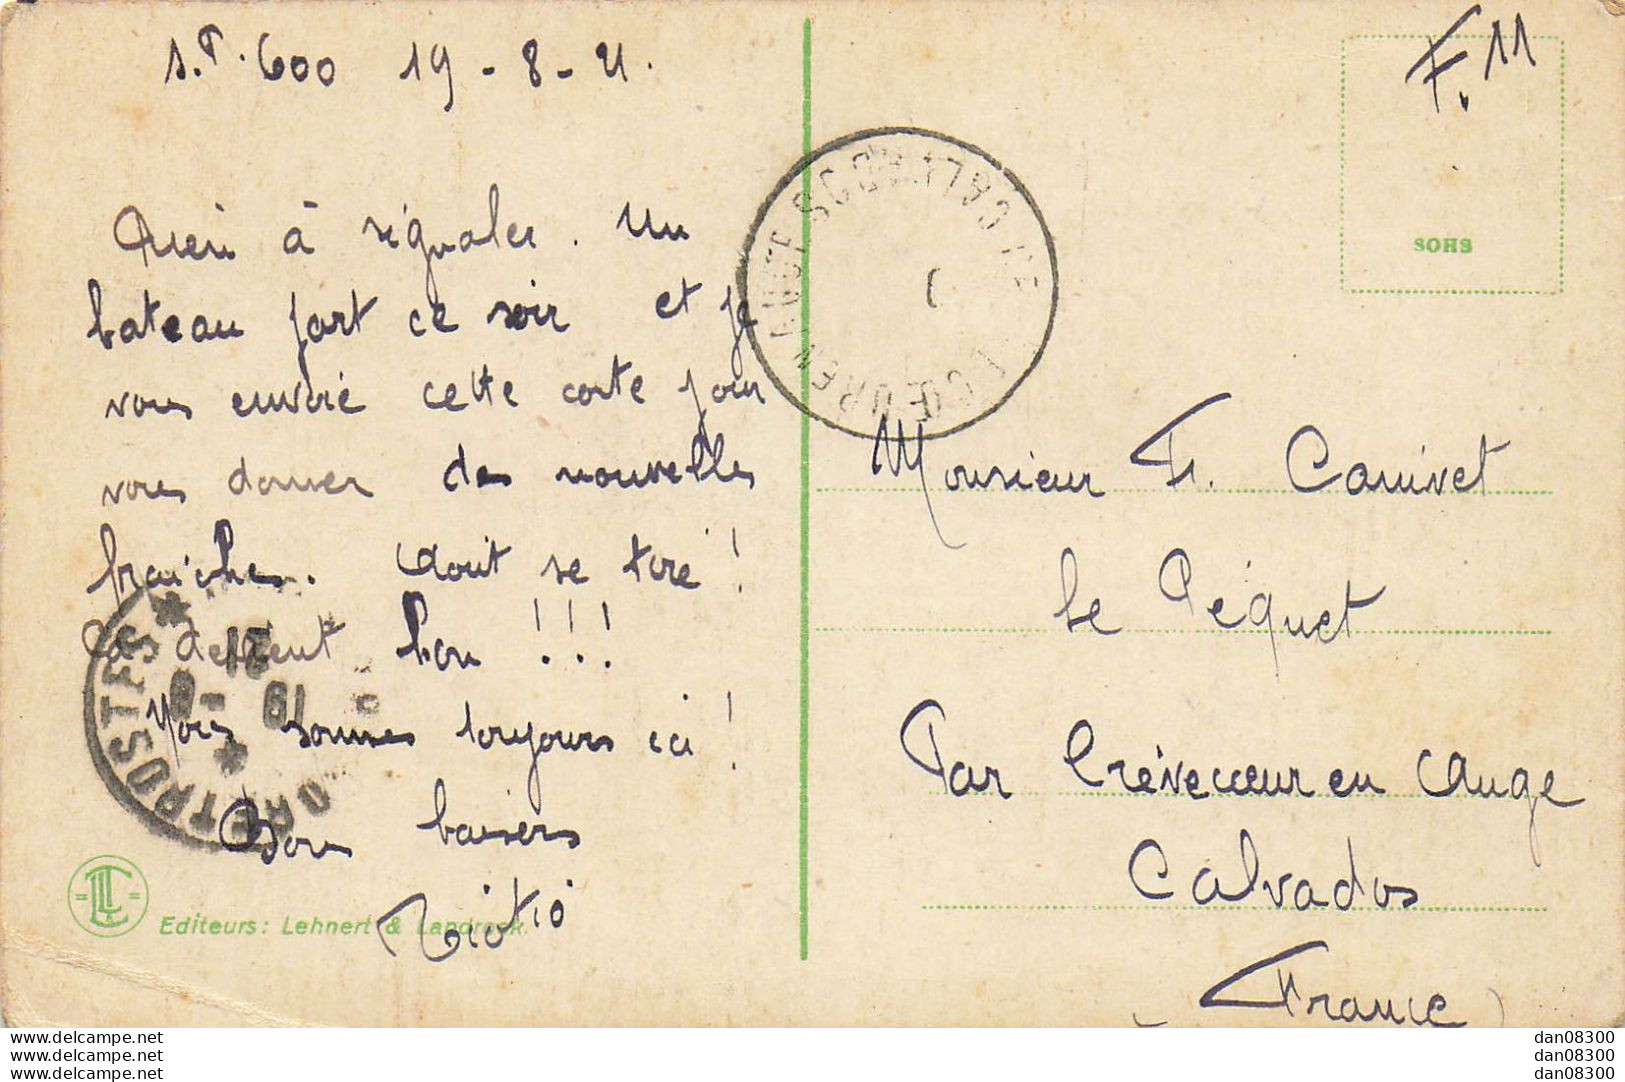 S.P. 600 19-8-21.
Rien à signaler. Un
bateau part ce soir et je
vous envoie cette carte pour
vous donner des nouvelles
fraîches. Aout se tire !
Cas devient bon !!!
Nous sommes toujours ici !
Bons baisers
Editeurs: Lehnert & Landrock.
F. 11
SOHS
Monsieur Fr. Canivet
le Péquet
Par Crèvecœur en Auge
Calvados
(France)
TRESOR ET POSTES
19 - 8
21
www.delcampe.net
www.delcampe.net
www.delcampe.net
dan08300
dan08300
dan08300